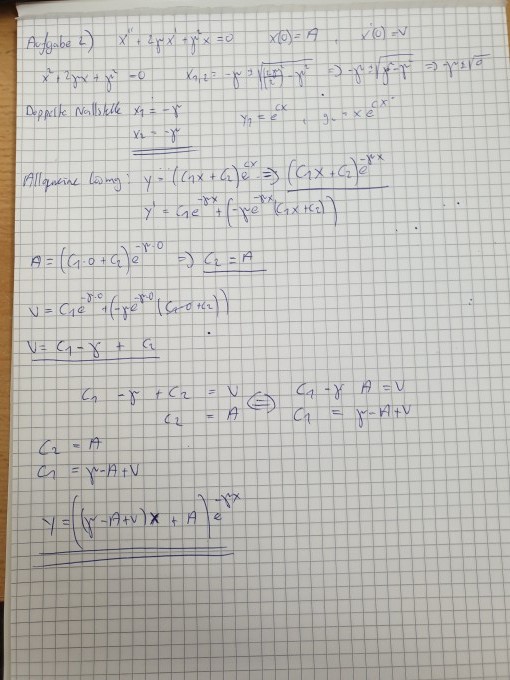 Aufgabe 2) x'' + 2γx' + γ²x = 0 x(0) = A, x'(0) = V
x² + 2γx + γ² = 0 x₁,₂ = -γ ± √((2γ/2)² - γ²) => -γ ± √(γ² - γ²) => -γ ± √0
Doppelte Nullstelle x₁ = -γ y₁ = e^(cx), y₂ = x e^(cx)
x₂ = -γ
Allgemeine Lösung: y = (C₁x + C₂)e^(cx) => (C₁x + C₂)e^(-γx)
y' = C₁e^(-γx) + (-γe^(-γx) (C₁x + C₂))
A = (C₁·0 + C₂)e^(-γ·0) => C₂ = A
V = C₁e^(-γ·0) + (-γe^(-γ·0) (C₁·0 + C₂))
V = C₁ - γ + C₂
C₁ - γ + C₂ = V <=> C₁ - γ A = V
C₂ = A C₁ = γ - A + V
C₂ = A
C₁ = γ - A + V
y = ((γ - A + V)x + A)e^(-γx)